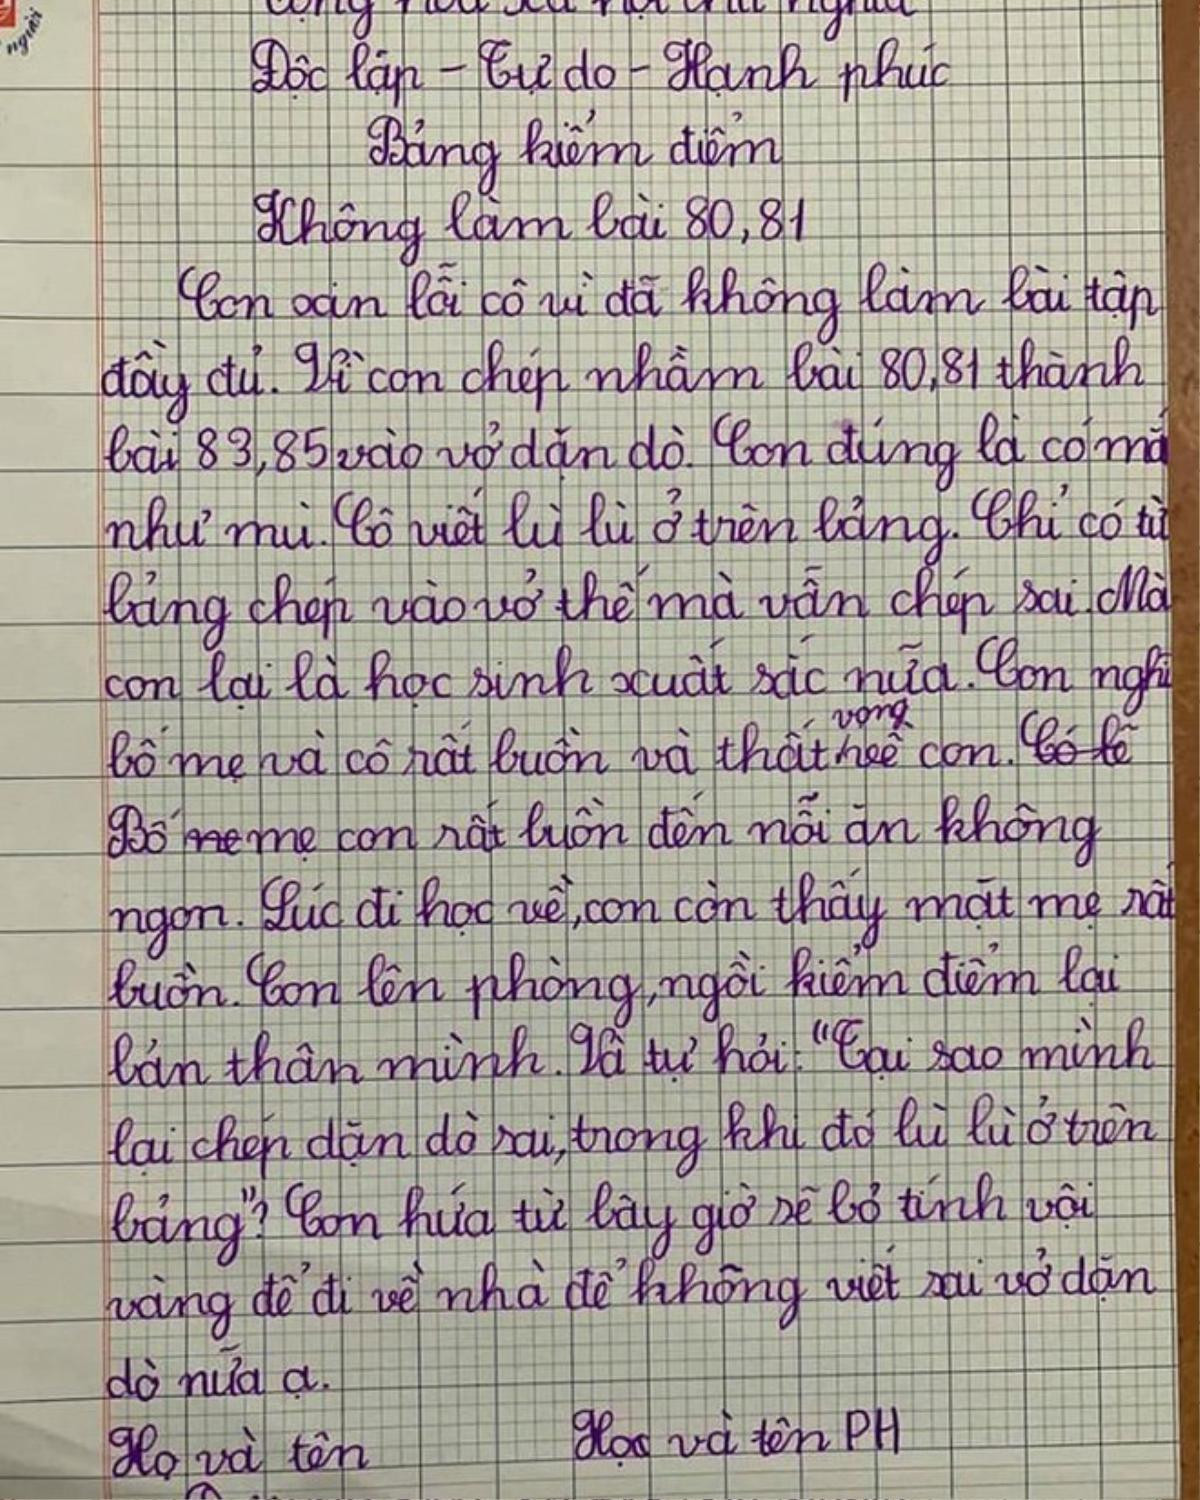 người
Cộng hòa xã hội chủ nghĩa
Độc lập - Tự do - Hạnh phúc
Bảng kiểm điểm
Không làm bài 80,81
Con xin lỗi cô vì đã không làm bài tập
đầy đủ. Vì con chép nhầm bài 80,81 thành
bài 83,85 vào vở dặn dò. Con đúng là có mắ
như mù. Cô viết lù lù ở trên bảng. Chỉ có từ
bảng chép vào vở thế mà vẫn chép sai. Mà
con lại là học sinh xuất sắc nữa. Con nghĩ
vọng
bố mẹ và cô rất buồn và thất về con. Có lẽ
Bố me mẹ con rất buồn đến nỗi ăn không
ngon. Lúc đi học về, con còn thấy mặt mẹ rất
buồn. Con lên phòng, ngồi kiểm điểm lại
bản thân mình. Và tự hỏi: "Tại sao mình
lại chép dặn dò sai, trong khi đó lù lù ở trên
bảng"? Con hứa từ bây giờ sẽ bỏ tính vội
vàng để đi về nhà để không viết sai vở dặn
dò nữa ạ.
Họ và tên Họ và tên PH